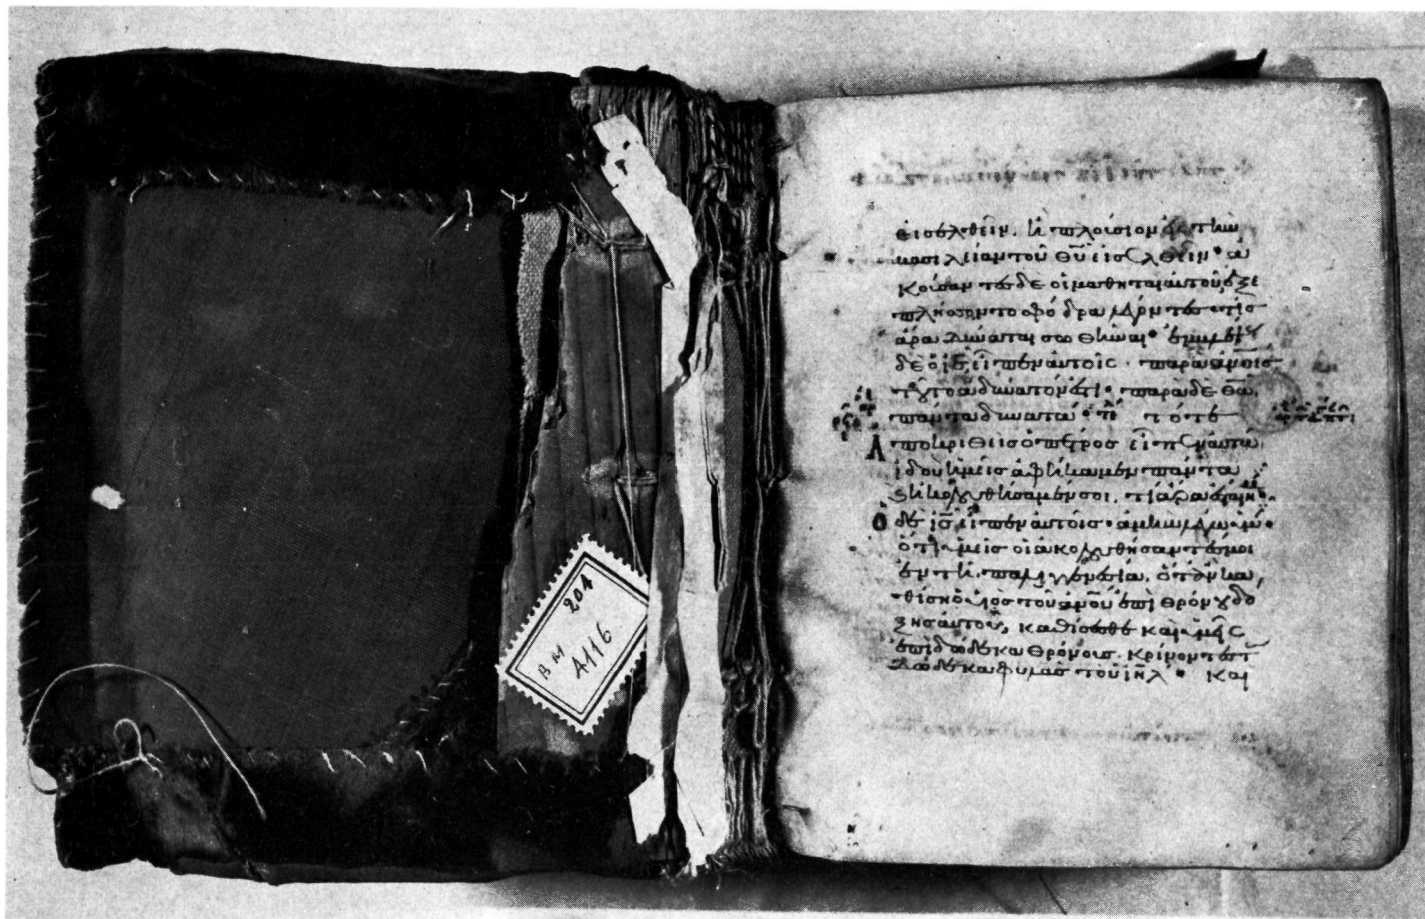 204
BM
A116
εισελθεῖν. ἢ πλούσιον εἰς τὴν
βασιλείαν τοῦ θ̅υ̅ εἰσελθεῖν· ἀ
κούσαντες δὲ οἱ μαθηταὶ αὐτοῦ ἐξε
πλήσσοντο σφόδρα λέγοντες· τίς
ἄρα δύναται σωθῆναι·
δὲ ὁ ι̅ς̅ εἶπεν αὐτοῖς· παρὰ ἀν̅οις
τοῦτο ἀδύνατόν ἐστι· παρὰ δὲ θ̅ω̅
πάντα δυνατά· τότε
Ἀποκριθεὶς ὁ πέτρος εἶπεν αὐτῷ,
ἰδοὺ ἡμεῖς ἀφήκαμεν πάντα
ἠκολουθήσαμέν σοι. τί ἄρα ἔσται
Ὁ δὲ ι̅ς̅ εἶπεν αὐτοῖς· ἀμὴν λέγω ὑμῖν·
ὅτι ὑμεῖς οἱ ἀκολουθήσαντές μοι
ἐν τῇ παλιγγενεσίᾳ, ὅταν κα
θίσῃ ὁ υἱὸς τοῦ ἀν̅ου̅ ἐπὶ θρόνου δό
ξης αὐτοῦ, καθίσεσθε καὶ ὑμεῖς
ἐπὶ δώδεκα θρόνους. κρίνοντες τ
δώδεκα φυλὰς τοῦ ι̅η̅λ̅· Καὶ